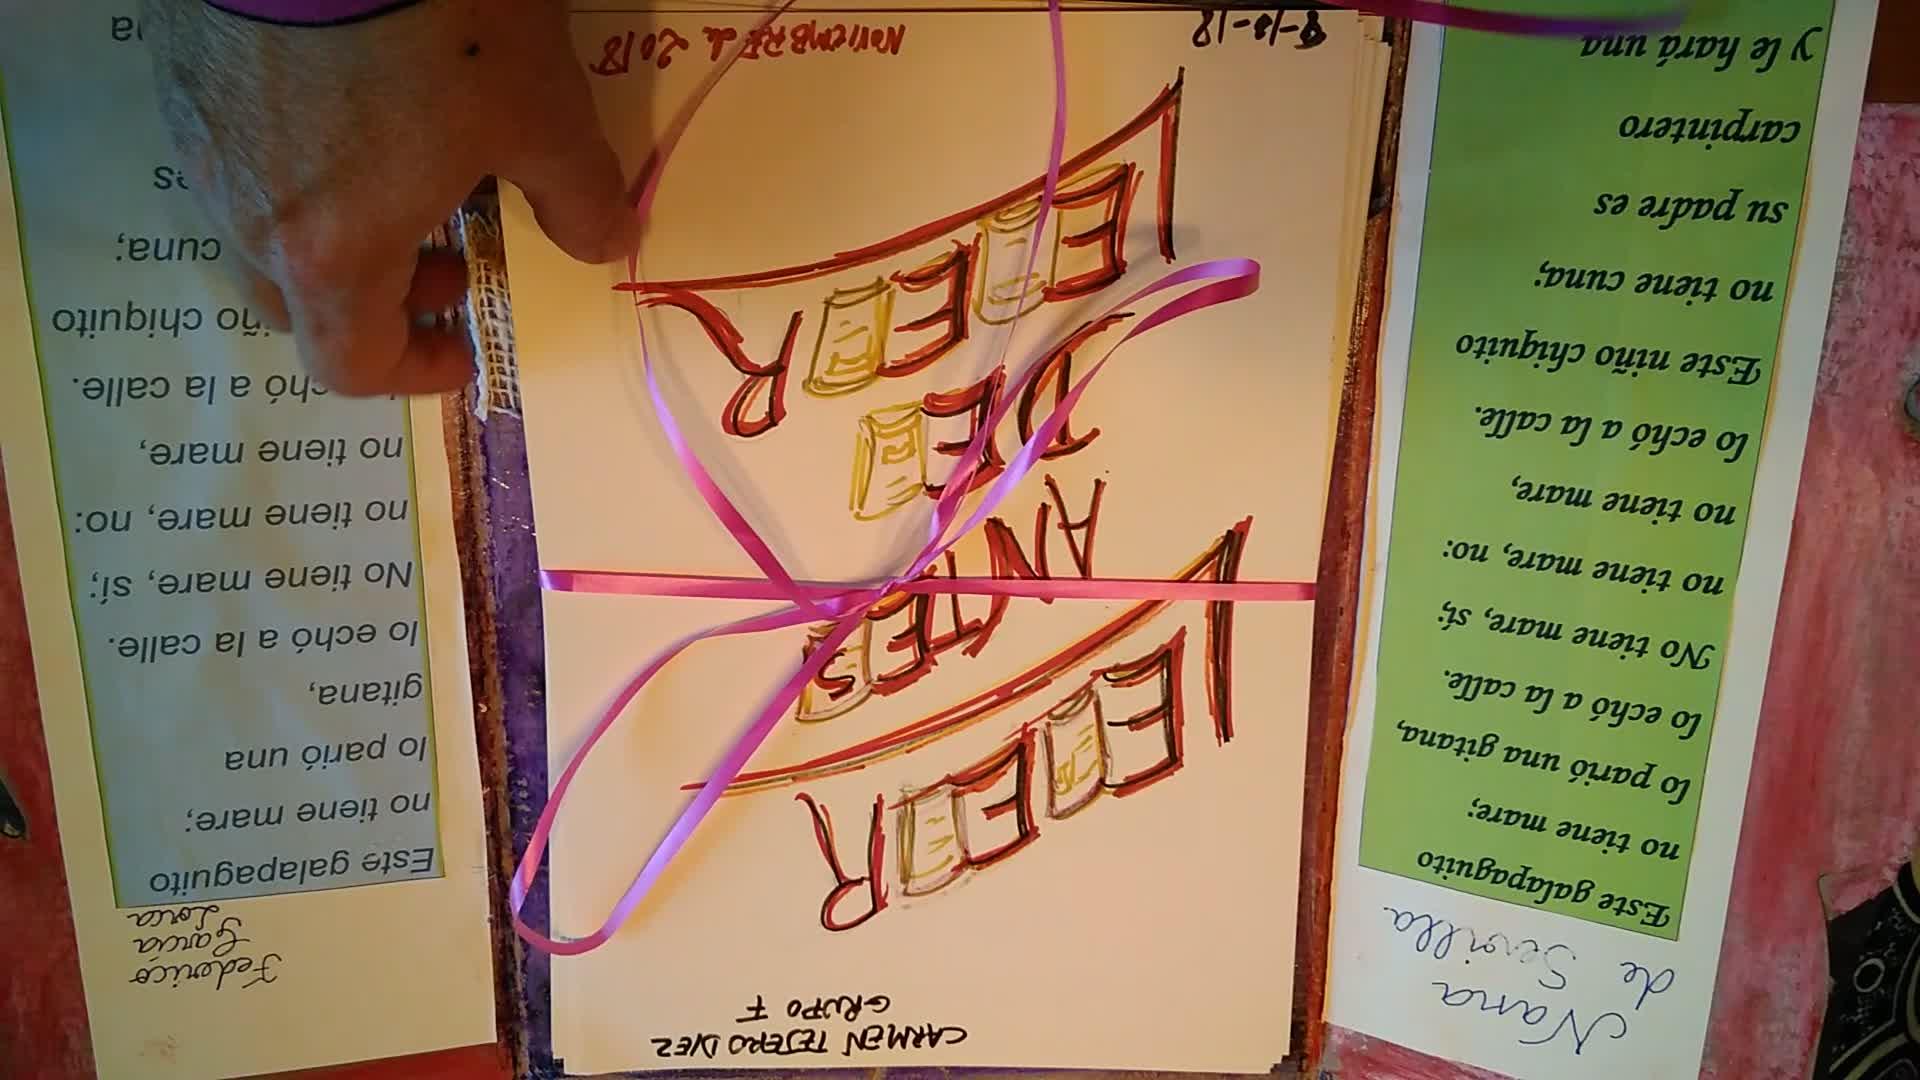 Nana
de Sevilla
Este galapaguito
no tiene mare;
lo parió una gitana,
lo echó a la calle.
No tiene mare, sí;
no tiene mare, no:
no tiene mare,
lo echó a la calle.
Este niño chiquito
no tiene cuna;
su padre es
carpintero
y le hará una
CARMEN TEJERO DIEZ
GRUPO F
LEER
ANTES
DE
LEER
NOVIEMBRE de 2018
Federico
García
Lorca
Este galapaguito
no tiene mare;
lo parió una
gitana,
lo echó a la calle.
No tiene mare, sí;
no tiene mare, no:
no tiene mare,
a la calle.
chiquito
cuna;